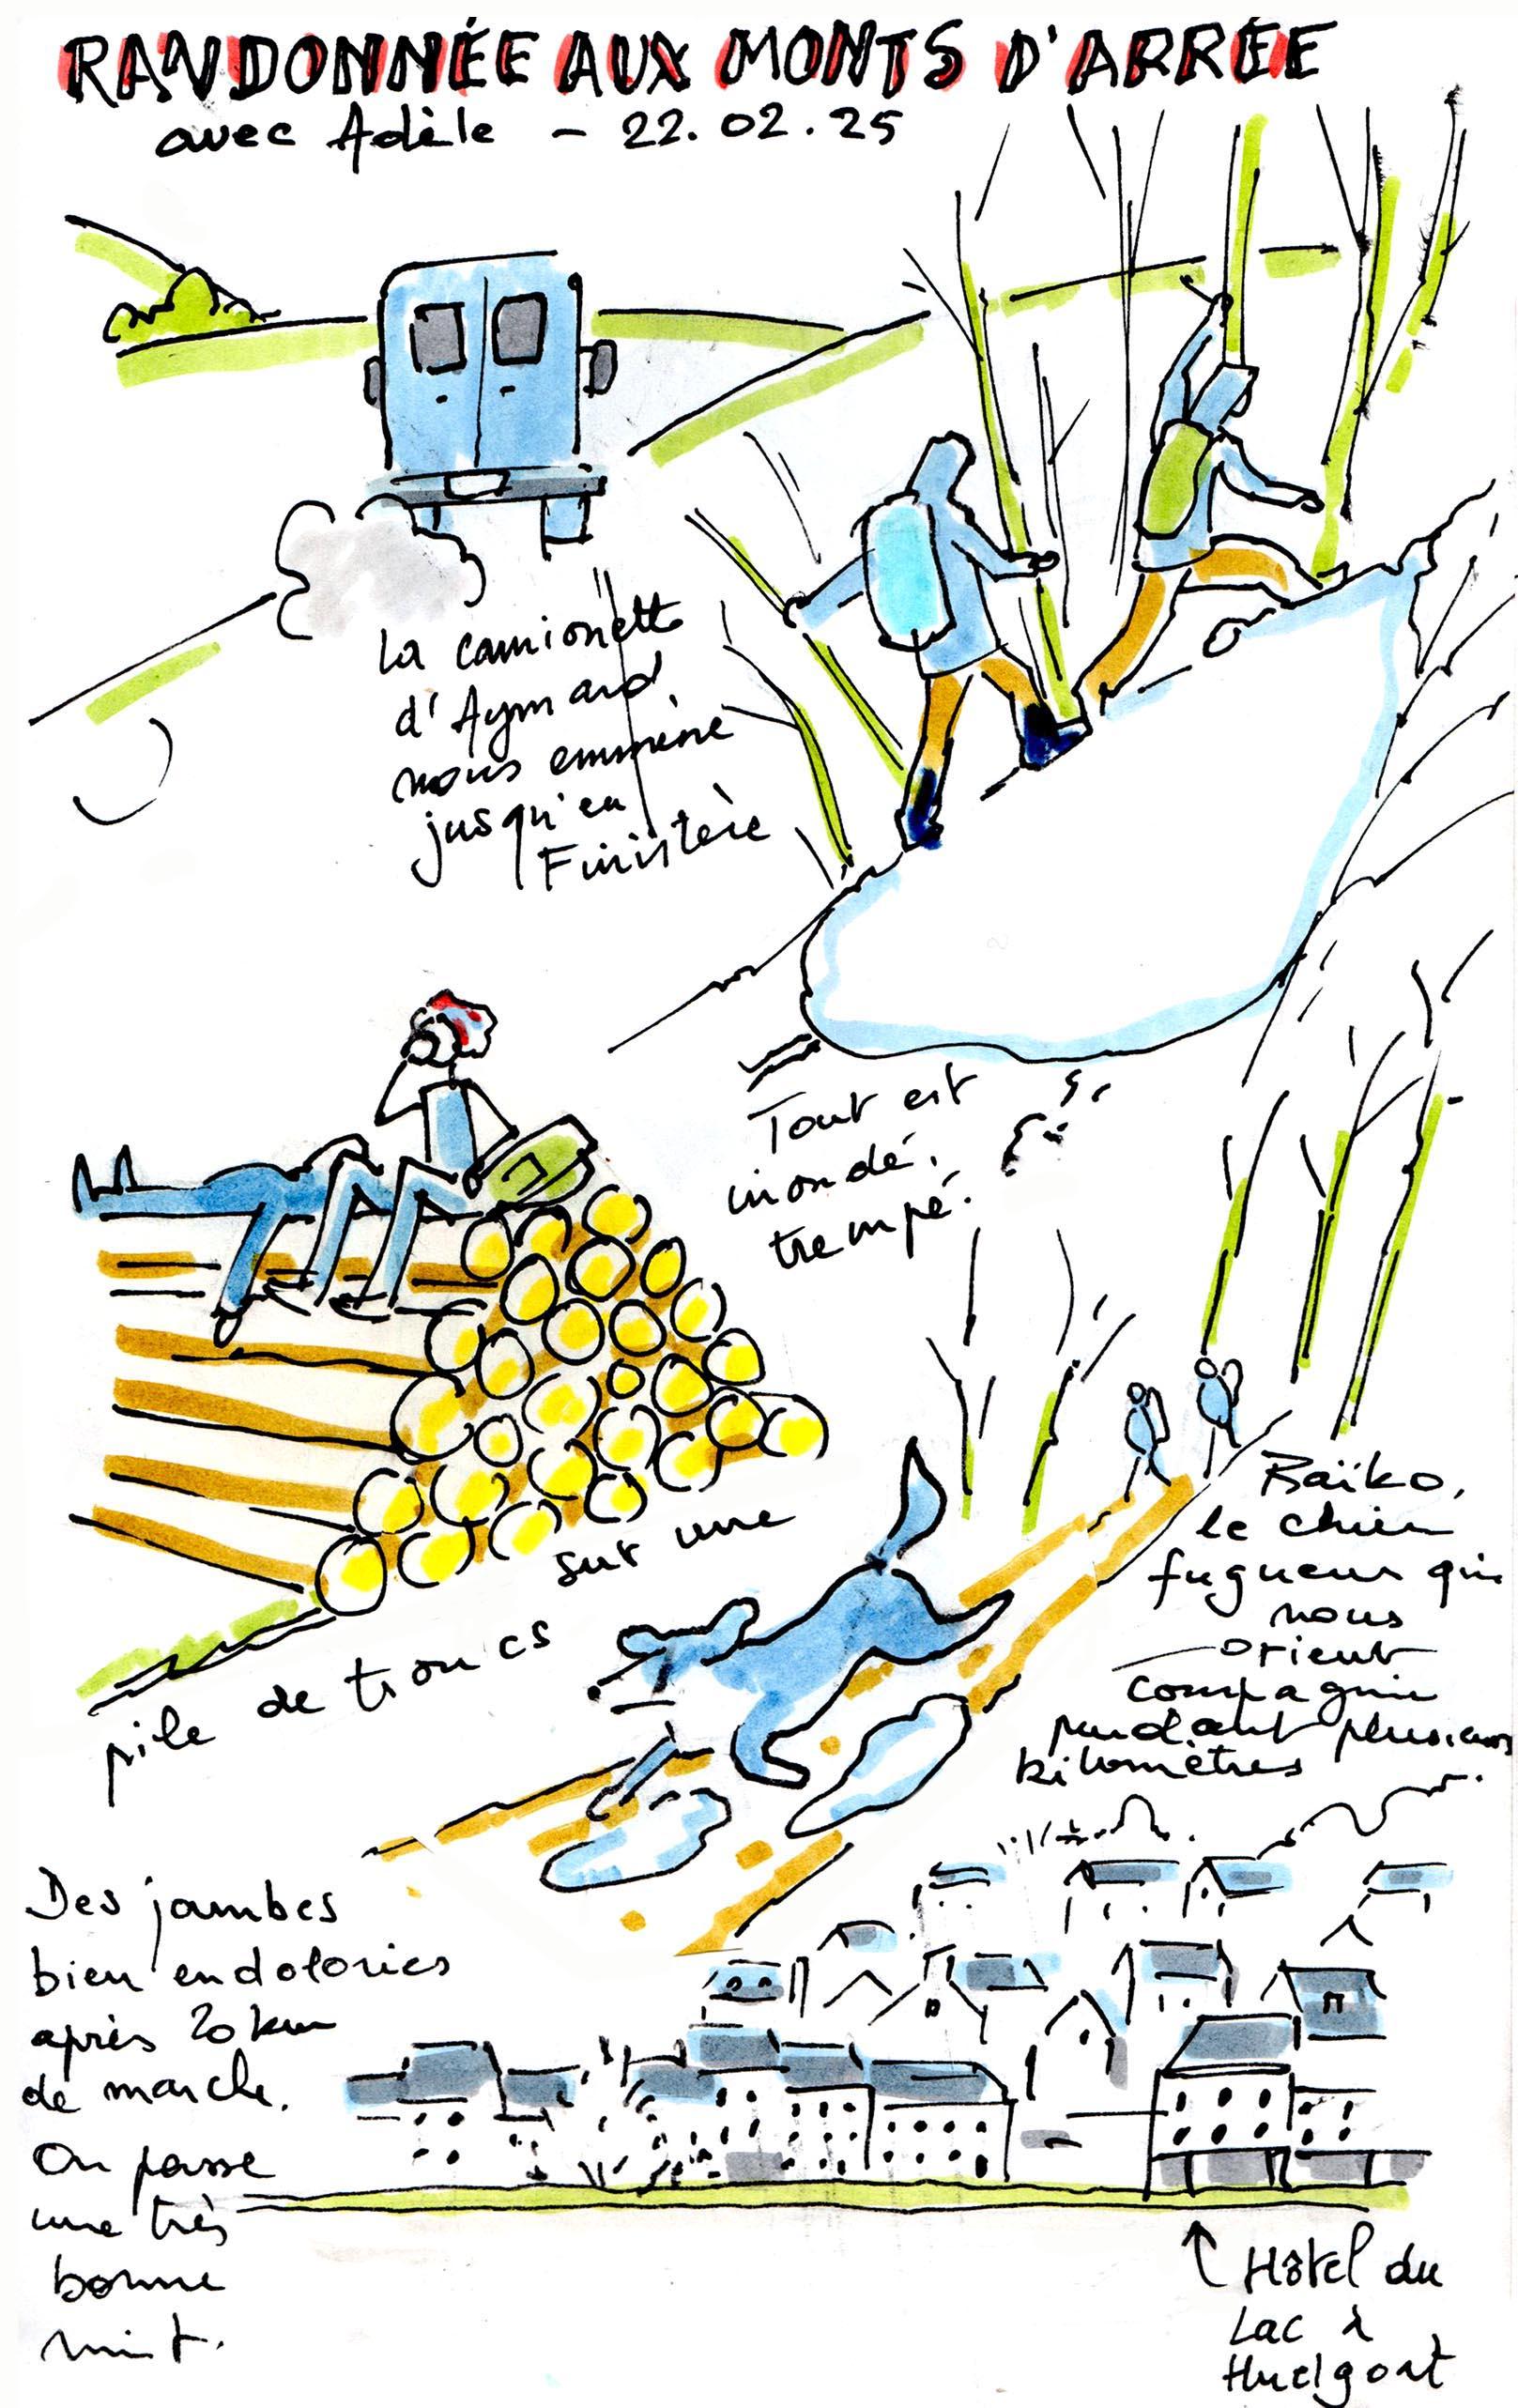 RANDONNÉE AUX MONTS D'ARRÉE
avec Adèle - 22.02.25
La camionette
d'Aymard
nous emmène
jusqu'en
Finistère
Tout est
inondé,
trempé.
sur une
pile de troncs
Baïko,
le chien
fugueur qui
nous
tient
compagnie
pendant plusieurs
kilomètres
Des jambes
bien endolories
après 20 km
de marche.
On passe
une très
bonne
nuit.
Hôtel du
Lac à
Huelgoat